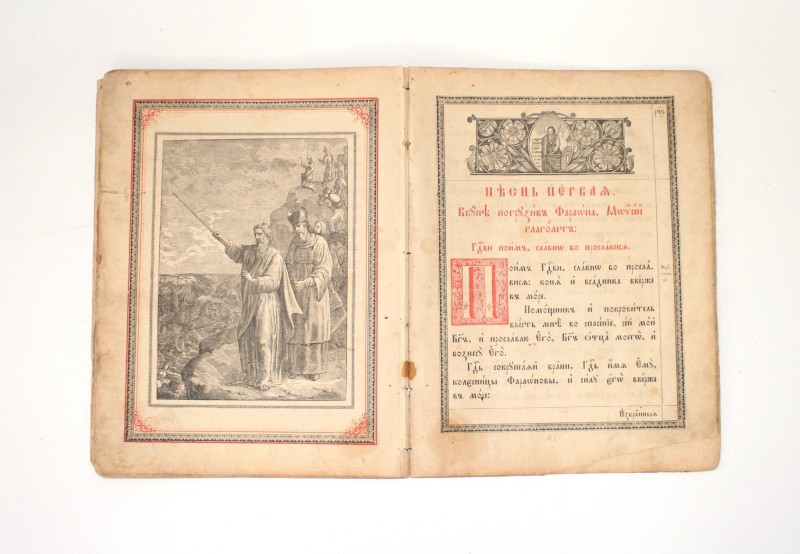 Пѣснь первая.
Вкупѣ погрузивъ Фараѡна, Мѡѷсей
глаголетъ:
Гдⷭ҇ви поимъ, славнѡ бо прославися.
Поимъ Гдⷭ҇ви, славнѡ бо просла-
вися: коня и҆ всадника вверже
въ мо́ре.
Помощникъ и҆ покровитель
бысть мнѣ во спасе́нїе, се́й мо́й
Бг҃ъ, и҆ прославлю Е҆го̀, Бг҃ъ ѻ҆тца̀ моегѡ̀, и҆
вознесу Е҆го̀.
Гдⷭ҇ь сокрушаяй брани, Гдⷭ҇ь и҆мя Е҆мꙋ̀,
колесницы Фараѡновы, и҆ силꙋ є҆гѡ̀ вверже
въ мо́ре:
И҆збранныя